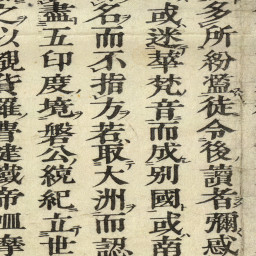 多所紛濫徒令後讀者彌惑
或迷華梵音而成别國或南
名而不指方若取大洲而認
盡五印度境磐公統紀立世
之以覩貨羅曹健鐵帝摩